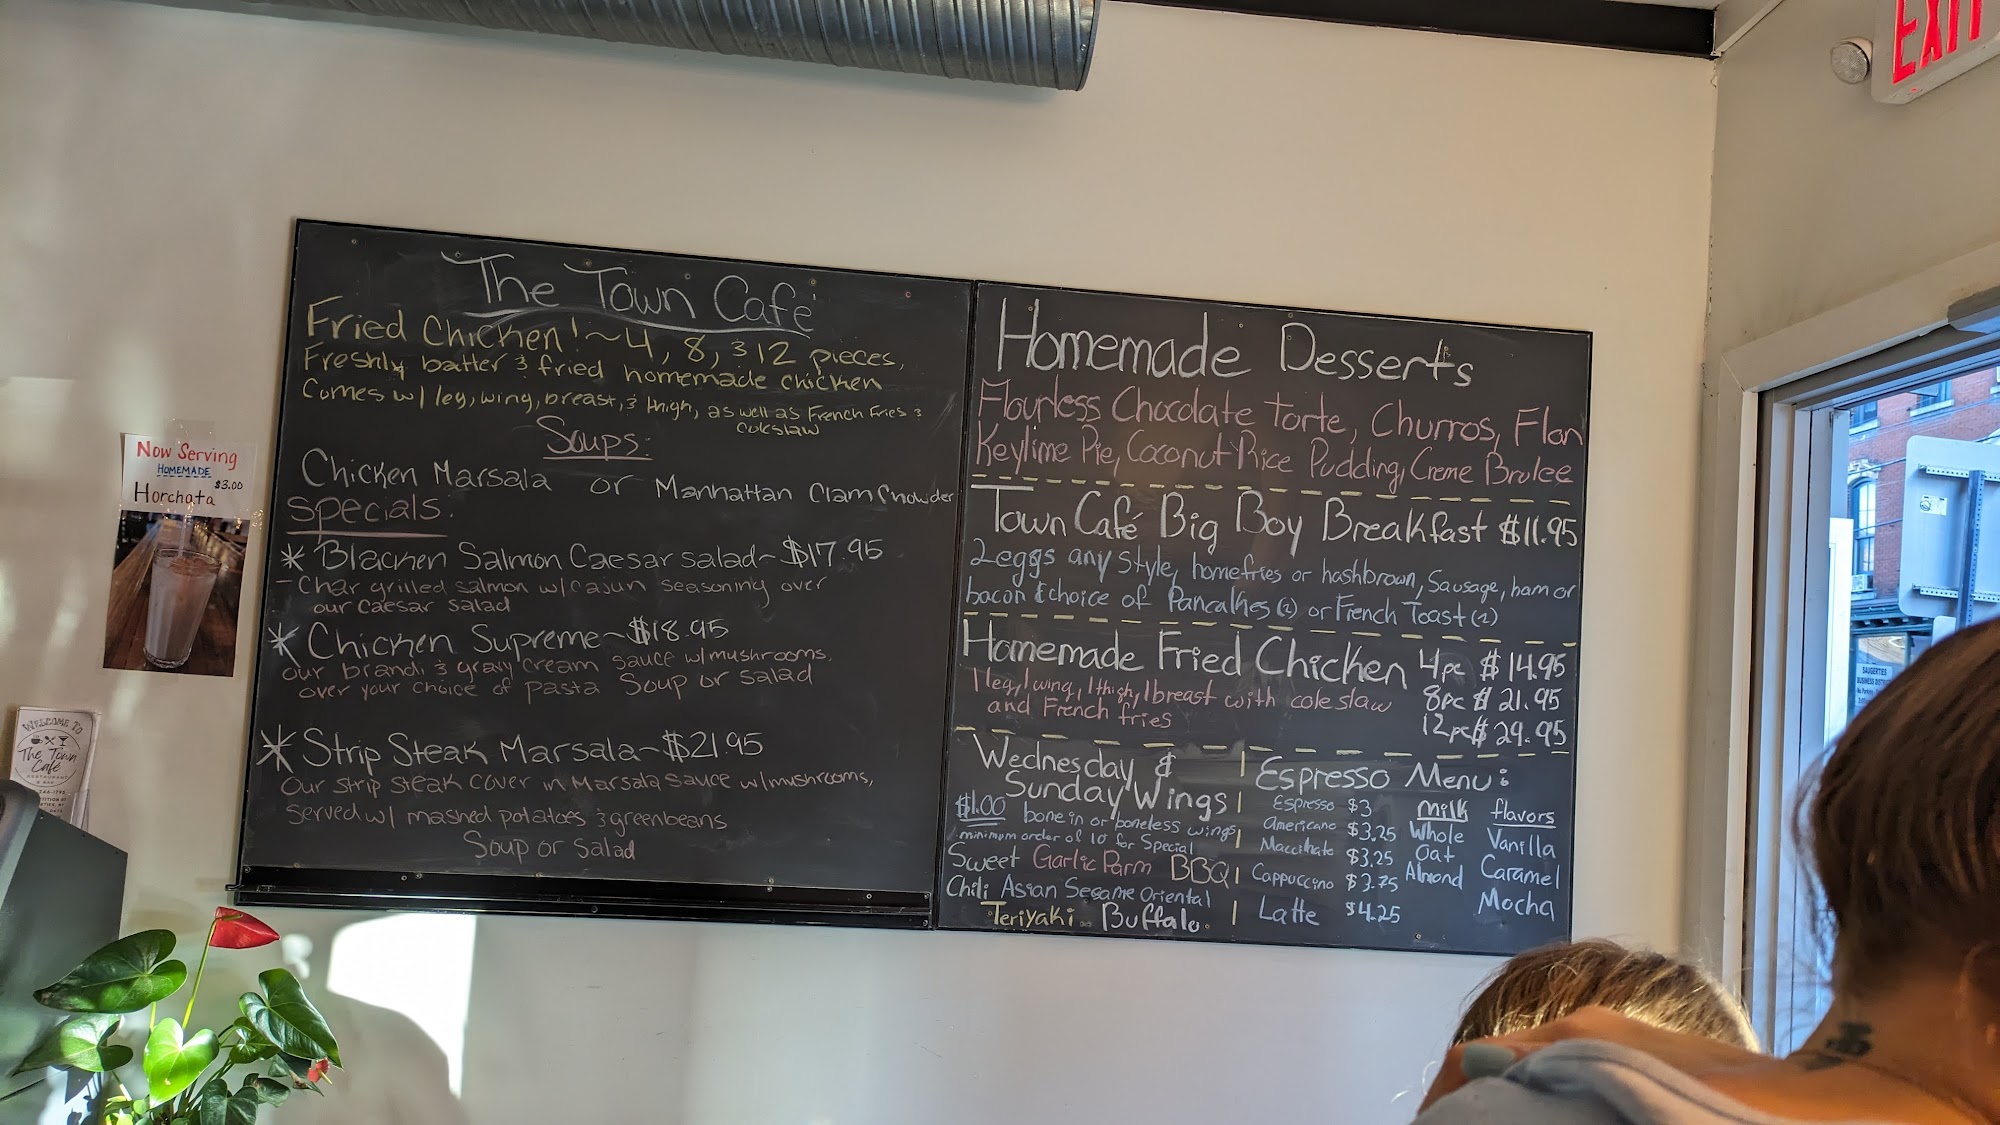 EXIT
The Town Café
Fried Chicken! ~ 4, 8, & 12 pieces,
Freshly batter & fried homemade chicken
Comes w/ leg, wing, breast, & thigh, as well as French Fries &
coleslaw
Soups:
Chicken Marsala or Manhattan Clam Chowder
Specials:
* Blacken Salmon Caesar salad ~ $17.95
- Char grilled salmon w/ Cajun seasoning over
our Caesar salad
* Chicken Supreme ~ $18.95
our brandi & gravy cream sauce w/ mushrooms,
over your choice of pasta Soup or salad
* Strip Steak Marsala ~ $21.95
Our strip steak cover in Marsala sauce w/ mushrooms,
Served w/ mashed potatoes & greenbeans
Soup or Salad
Homemade Desserts
Flourless Chocolate Torte, Churros, Flan
Keylime Pie, Coconut Rice Pudding, Creme Brulee
Town Café Big Boy Breakfast $11.95
2 eggs any style, homefries or hashbrown, Sausage, ham or
bacon & choice of Pancakes (2) or French Toast (2)
Homemade Fried Chicken 4pc $14.95
1 leg, 1 wing, 1 thigh, 1 breast with cole slaw 8pc $21.95
and French fries 12pc $29.95
Wednesday &
Sunday Wings
$1.00 bone in or boneless wings
minimum order of 10 for Special
Sweet Garlic Parm BBQ
Chili Asian Sesame Oriental
Teriyaki Buffalo
Espresso Menu:
Espresso $3
Americano $3.25
Macchiato $3.25
Cappuccino $3.75
Latte $4.25
Milk
Whole
Oat
Almond
flavors
Vanilla
Caramel
Mocha
Now Serving
HOMEMADE
Horchata $3.00
WELCOME TO
The Town
Café
RESTAURANT
& BAR
SAUGERTIES